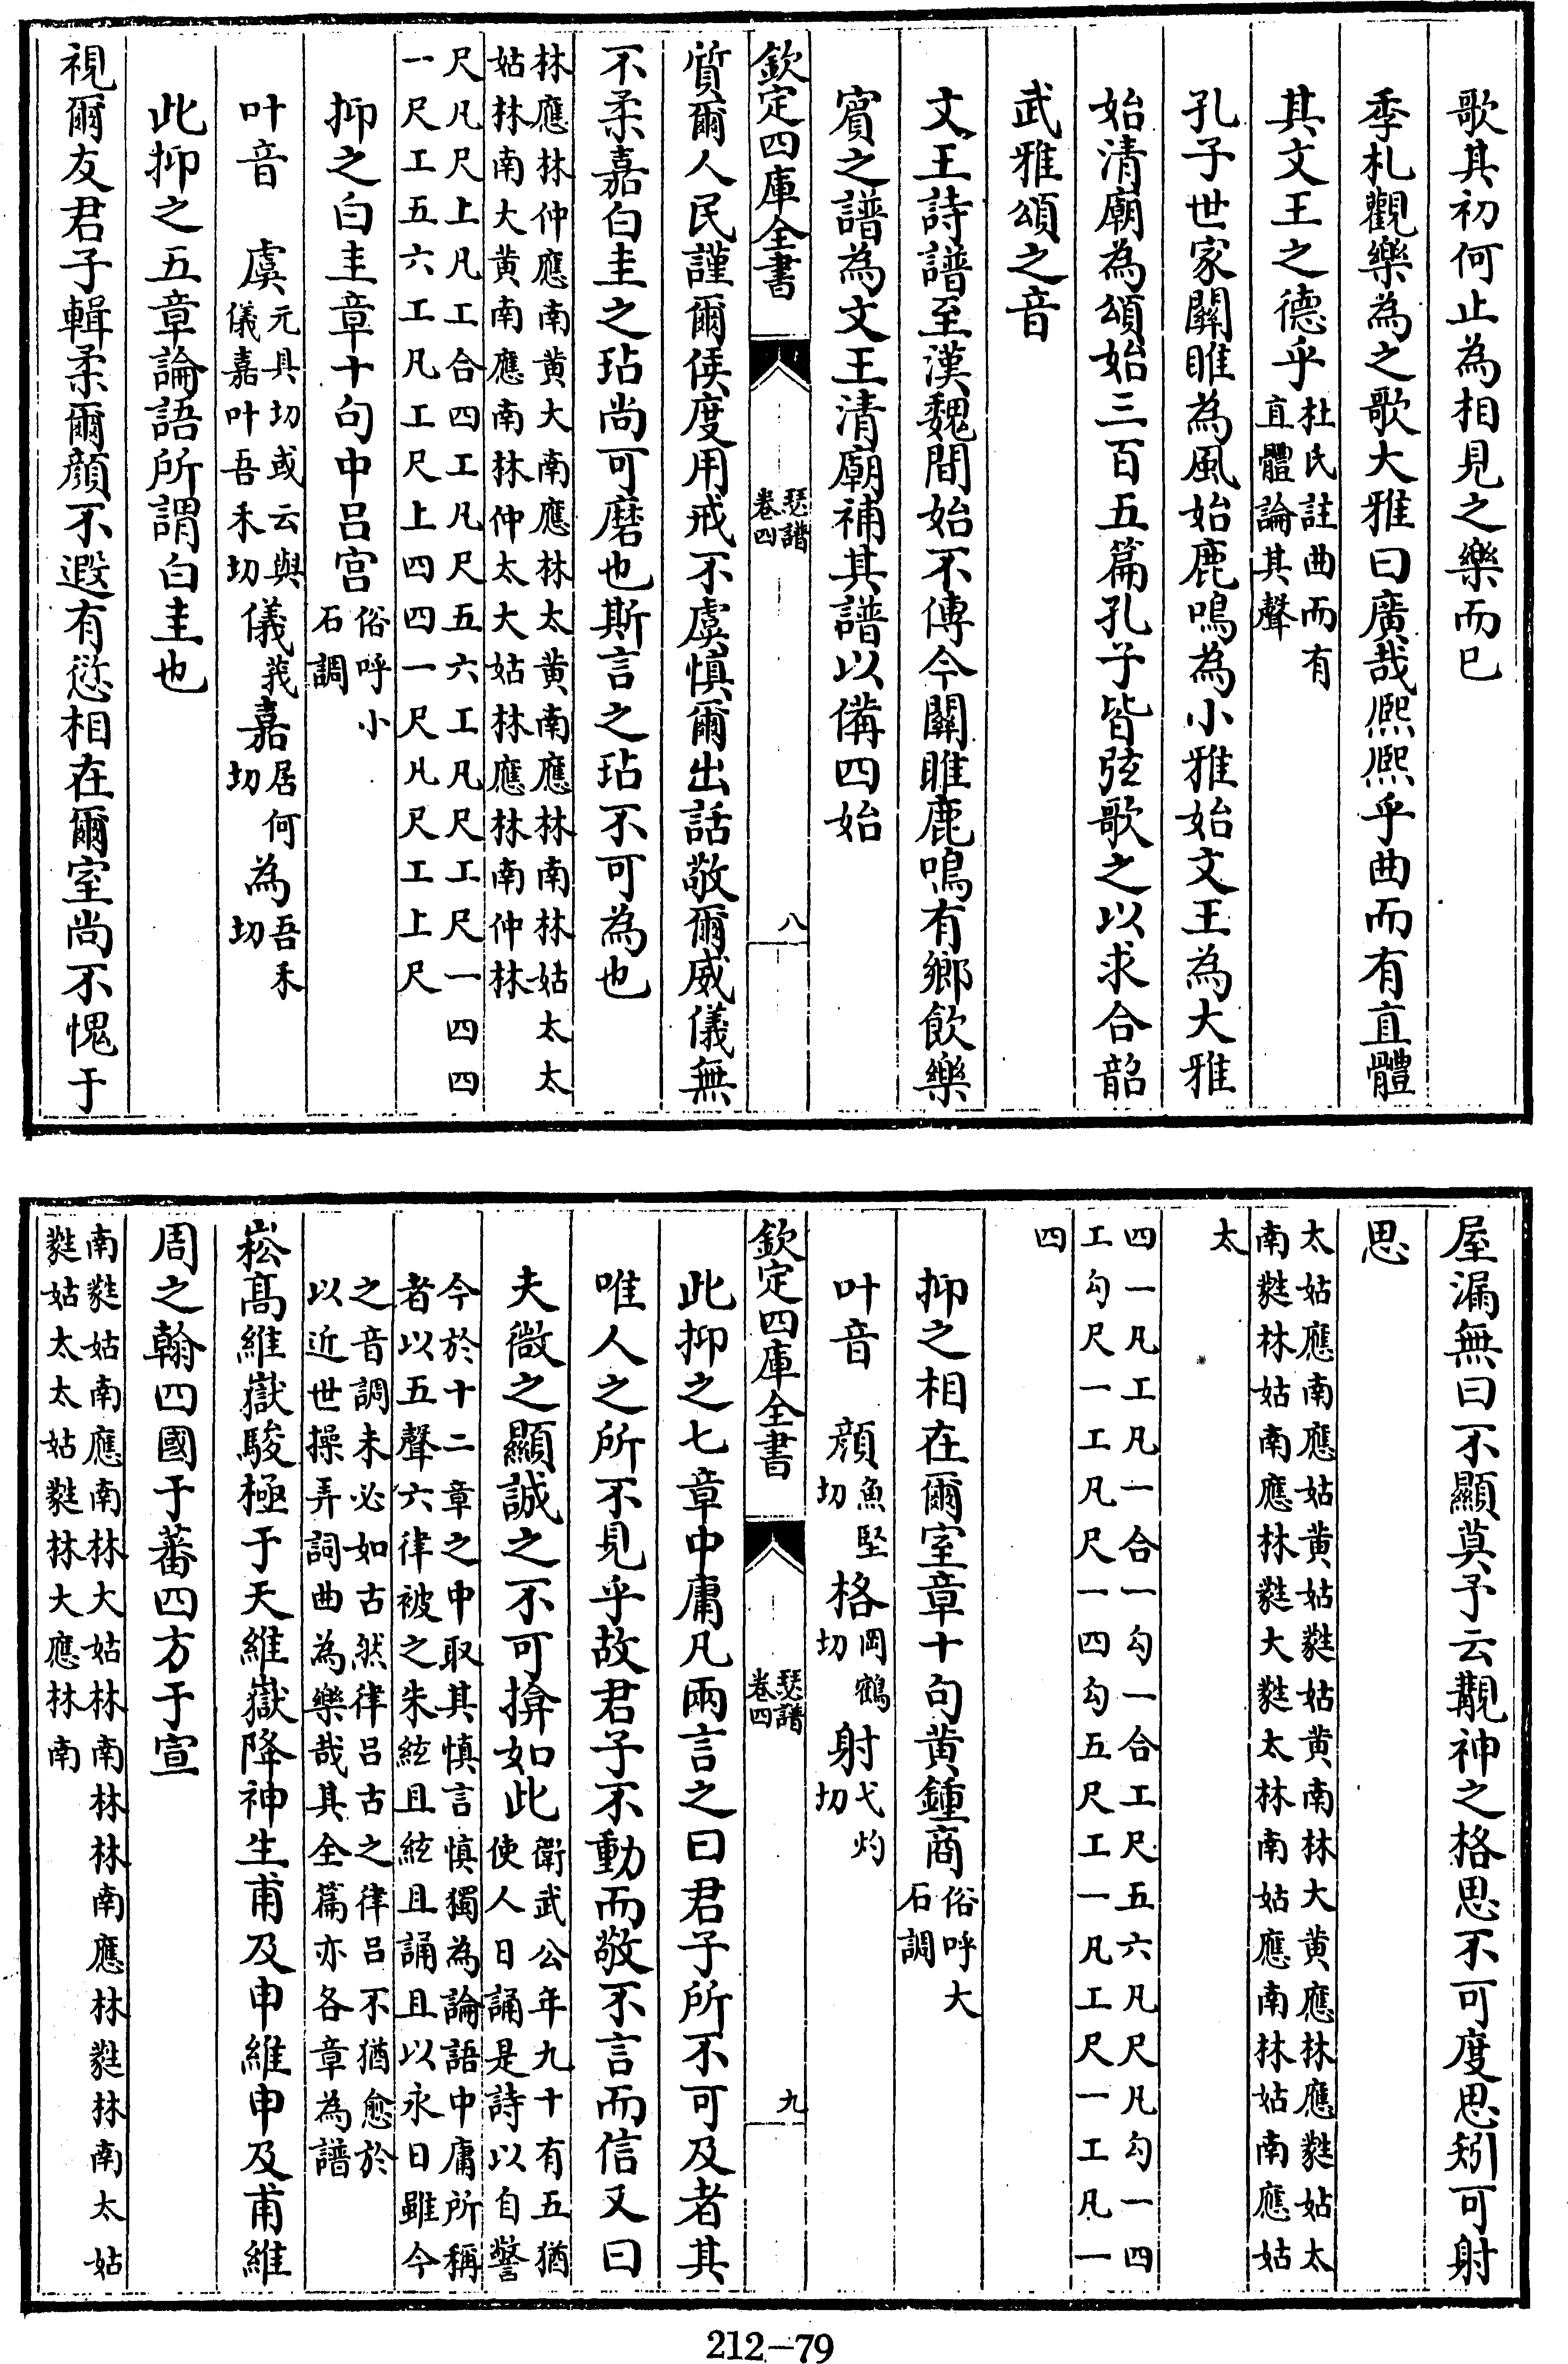 歌其初何止為相見之樂而已
季札觀樂為之歌大雅曰廣哉熈熈乎曲而有直體
其文王之德乎杜氏註曲而有
直體論其聲
孔子世家關雎為風始鹿鳴為小雅始文王為大雅
始清廟為頌始三百五篇孔子皆弦歌之以求合韶
武雅頌之音
文王詩譜至漢魏間始不傳今關雎鹿鳴有鄉飲樂
賓之譜為文王清廟補其譜以備四始
欽定四庫全書
瑟譜
卷四
八
質爾人民謹爾侯度用戒不虞慎爾出話敬爾威儀無
不柔嘉白圭之玷尚可磨也斯言之玷不可為也
林應林仲應南黄大南應林太黄南應林南林姑太太
姑林南大黄南應南林仲太大姑林應林南仲林
尺凡尺上凡工合四工凡尺五六工凡尺工尺一四四
一尺工五六工凡工尺上四四一尺凡尺工上尺
抑之白圭章十句中吕宫俗呼小
石調
叶音 虞元具切或云與
儀嘉叶吾禾切儀莪嘉居何
切為吾禾
切
此抑之五章論語所謂白圭也
視爾友君子輯柔爾顔不遐有愆相在爾室尚不愧于
屋漏無曰不顯莫予云覯神之格思不可度思矧可射
思
太姑應南應姑黄姑蕤姑黄南林大黄應林應蕤姑太
南蕤林姑南應林蕤大蕤太林南姑應南林姑南應姑
太
四一凡工凡一合一勾一合工尺五六凡尺凡勾一四
工勾尺一工凡尺一四勾五尺工一凡工尺一工凡一
四
抑之相在爾室章十句黄鍾商俗呼大
石調
叶音 顔魚堅
切格岡鶴
切射弋灼
切
欽定四庫全書
瑟譜
卷四
九
此抑之七章中庸凡兩言之曰君子所不可及者其
唯人之所不見乎故君子不動而敬不言而信又曰
夫微之顯誠之不可揜如此衛武公年九十有五猶
使人日誦是詩以自警
今於十二章之中取其慎言慎獨為論語中庸所稱
者以五聲六律被之朱絃且絃且誦且以永日雖今
之音調未必如古然律吕古之律吕不猶愈於
以近世操弄詞曲為樂哉其全篇亦各章為譜
崧髙維嶽駿極于天維嶽降神生甫及申維申及甫維
周之翰四國于蕃四方于宣
南蕤姑南應南林大姑林南林林南應林蕤林南太姑
蕤姑太太姑蕤林大應林南
212—79